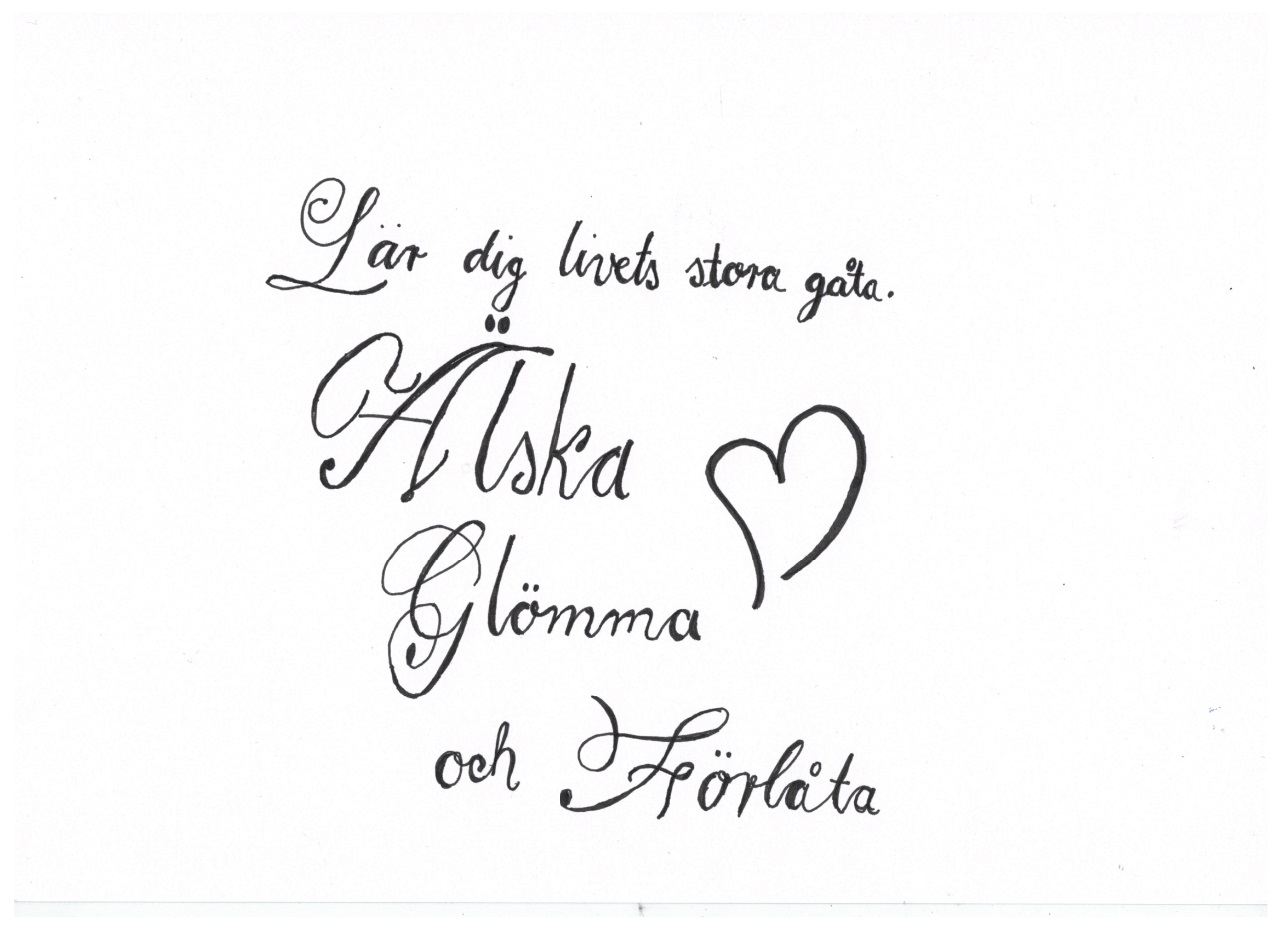 Lär dig livets stora gåta.
Älska
Glömma
och Förlåta